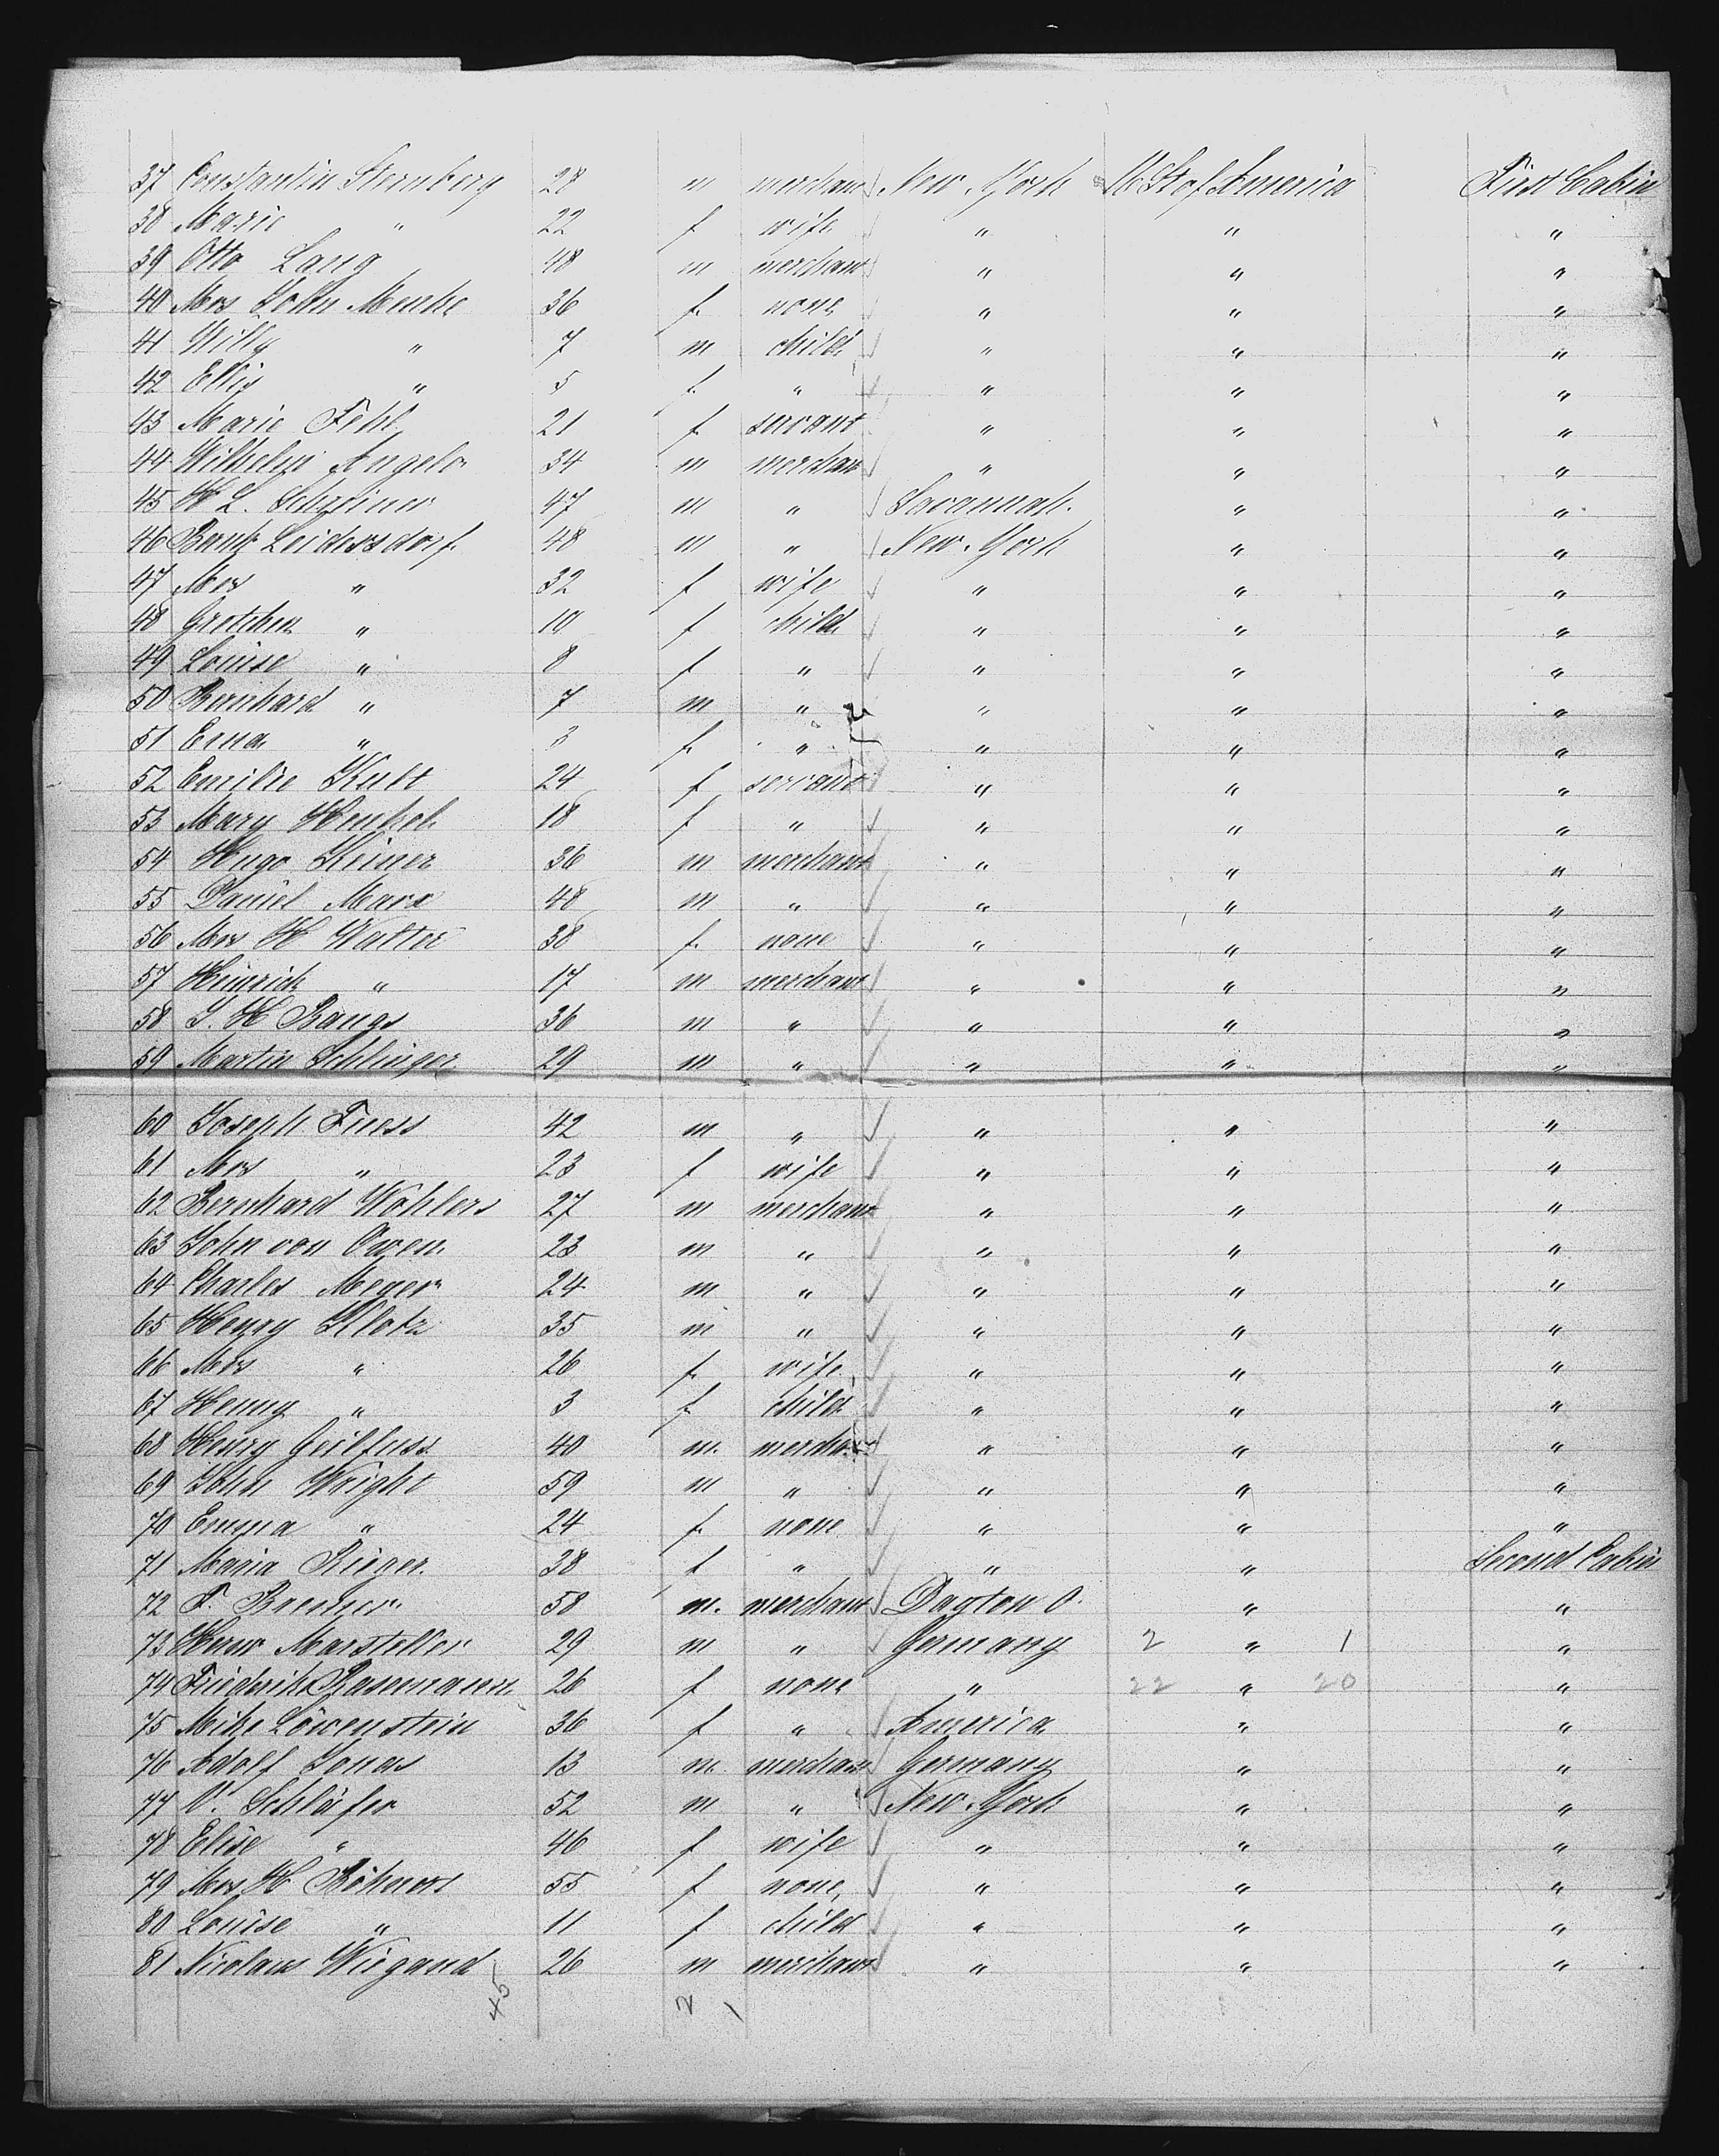 37 Constantin Sternberg 28 m merchant New York U. St of America First Cabin
38 Marie " 22 f wife " " "
39 Otto Lang 48 m merchant " " "
40 Mrs John Menke 36 f none " " "
41 Willy " 7 m child " " "
42 Ellis " 5 f " " " "
43 Marie Fehl 21 f servant " " "
44 Wilhelm Angelo 34 m merchant " " "
45 H L. Schreiner 47 m " Savannah. " "
46 Leidersdorf 48 m " New York " "
47 Mrs " 32 f wife " " "
48 Gretchen " 10 f child " " "
49 Louise " 8 f " " " "
50 Bernhard " 7 m " " " "
51 Erna " 3 f " " " "
52 Emilie Kult 24 f servant " " "
53 Mary Henkel 18 f " " " "
54 Hugo 36 m merchant " " "
55 Daniel Marx 48 m " " " "
56 Mrs H Walter 38 f none " " "
57 Heinrich " 17 m merchant " " "
58 S. H Bangs 36 m " " " "
59 Martin Schlinger 29 m " " " "
60 Joseph Fuess 42 m " " " "
61 Mrs " 23 f wife " " "
62 Bernhard Wöhlers 27 m merchant " " "
63 John von Owen 23 m " " " "
64 Charles Meyer 24 m " " " "
65 Henry Klotz 35 m " " " "
66 Mrs " 26 f wife " " "
67 Henny " 3 f child " " "
68 Henry Geilfuss 40 m. merchant " " "
69 John Wright 59 m " " " "
70 Emma " 24 f none " " "
71 Maria Rieger 38 f " " " Second Cabin
72 F. Bremer 58 m. merchant Dayton O. " "
73 Marsteller 29 m " Germany 2 " 1 "
74 Friederike Rasemann 26 f none " 22 " 20 "
75 Mike Löwenstein 36 f " America " "
76 Adolf Jonas 13 m merchant Germany " "
77 V. Schläfer 52 m " New York " "
78 Elise " 46 f wife " " "
79 Mrs H Böhmers 55 f none " " "
80 Louise " 11 f child " " "
81 Nicolaus Wiegand 26 m merchant " " "
45 2 1